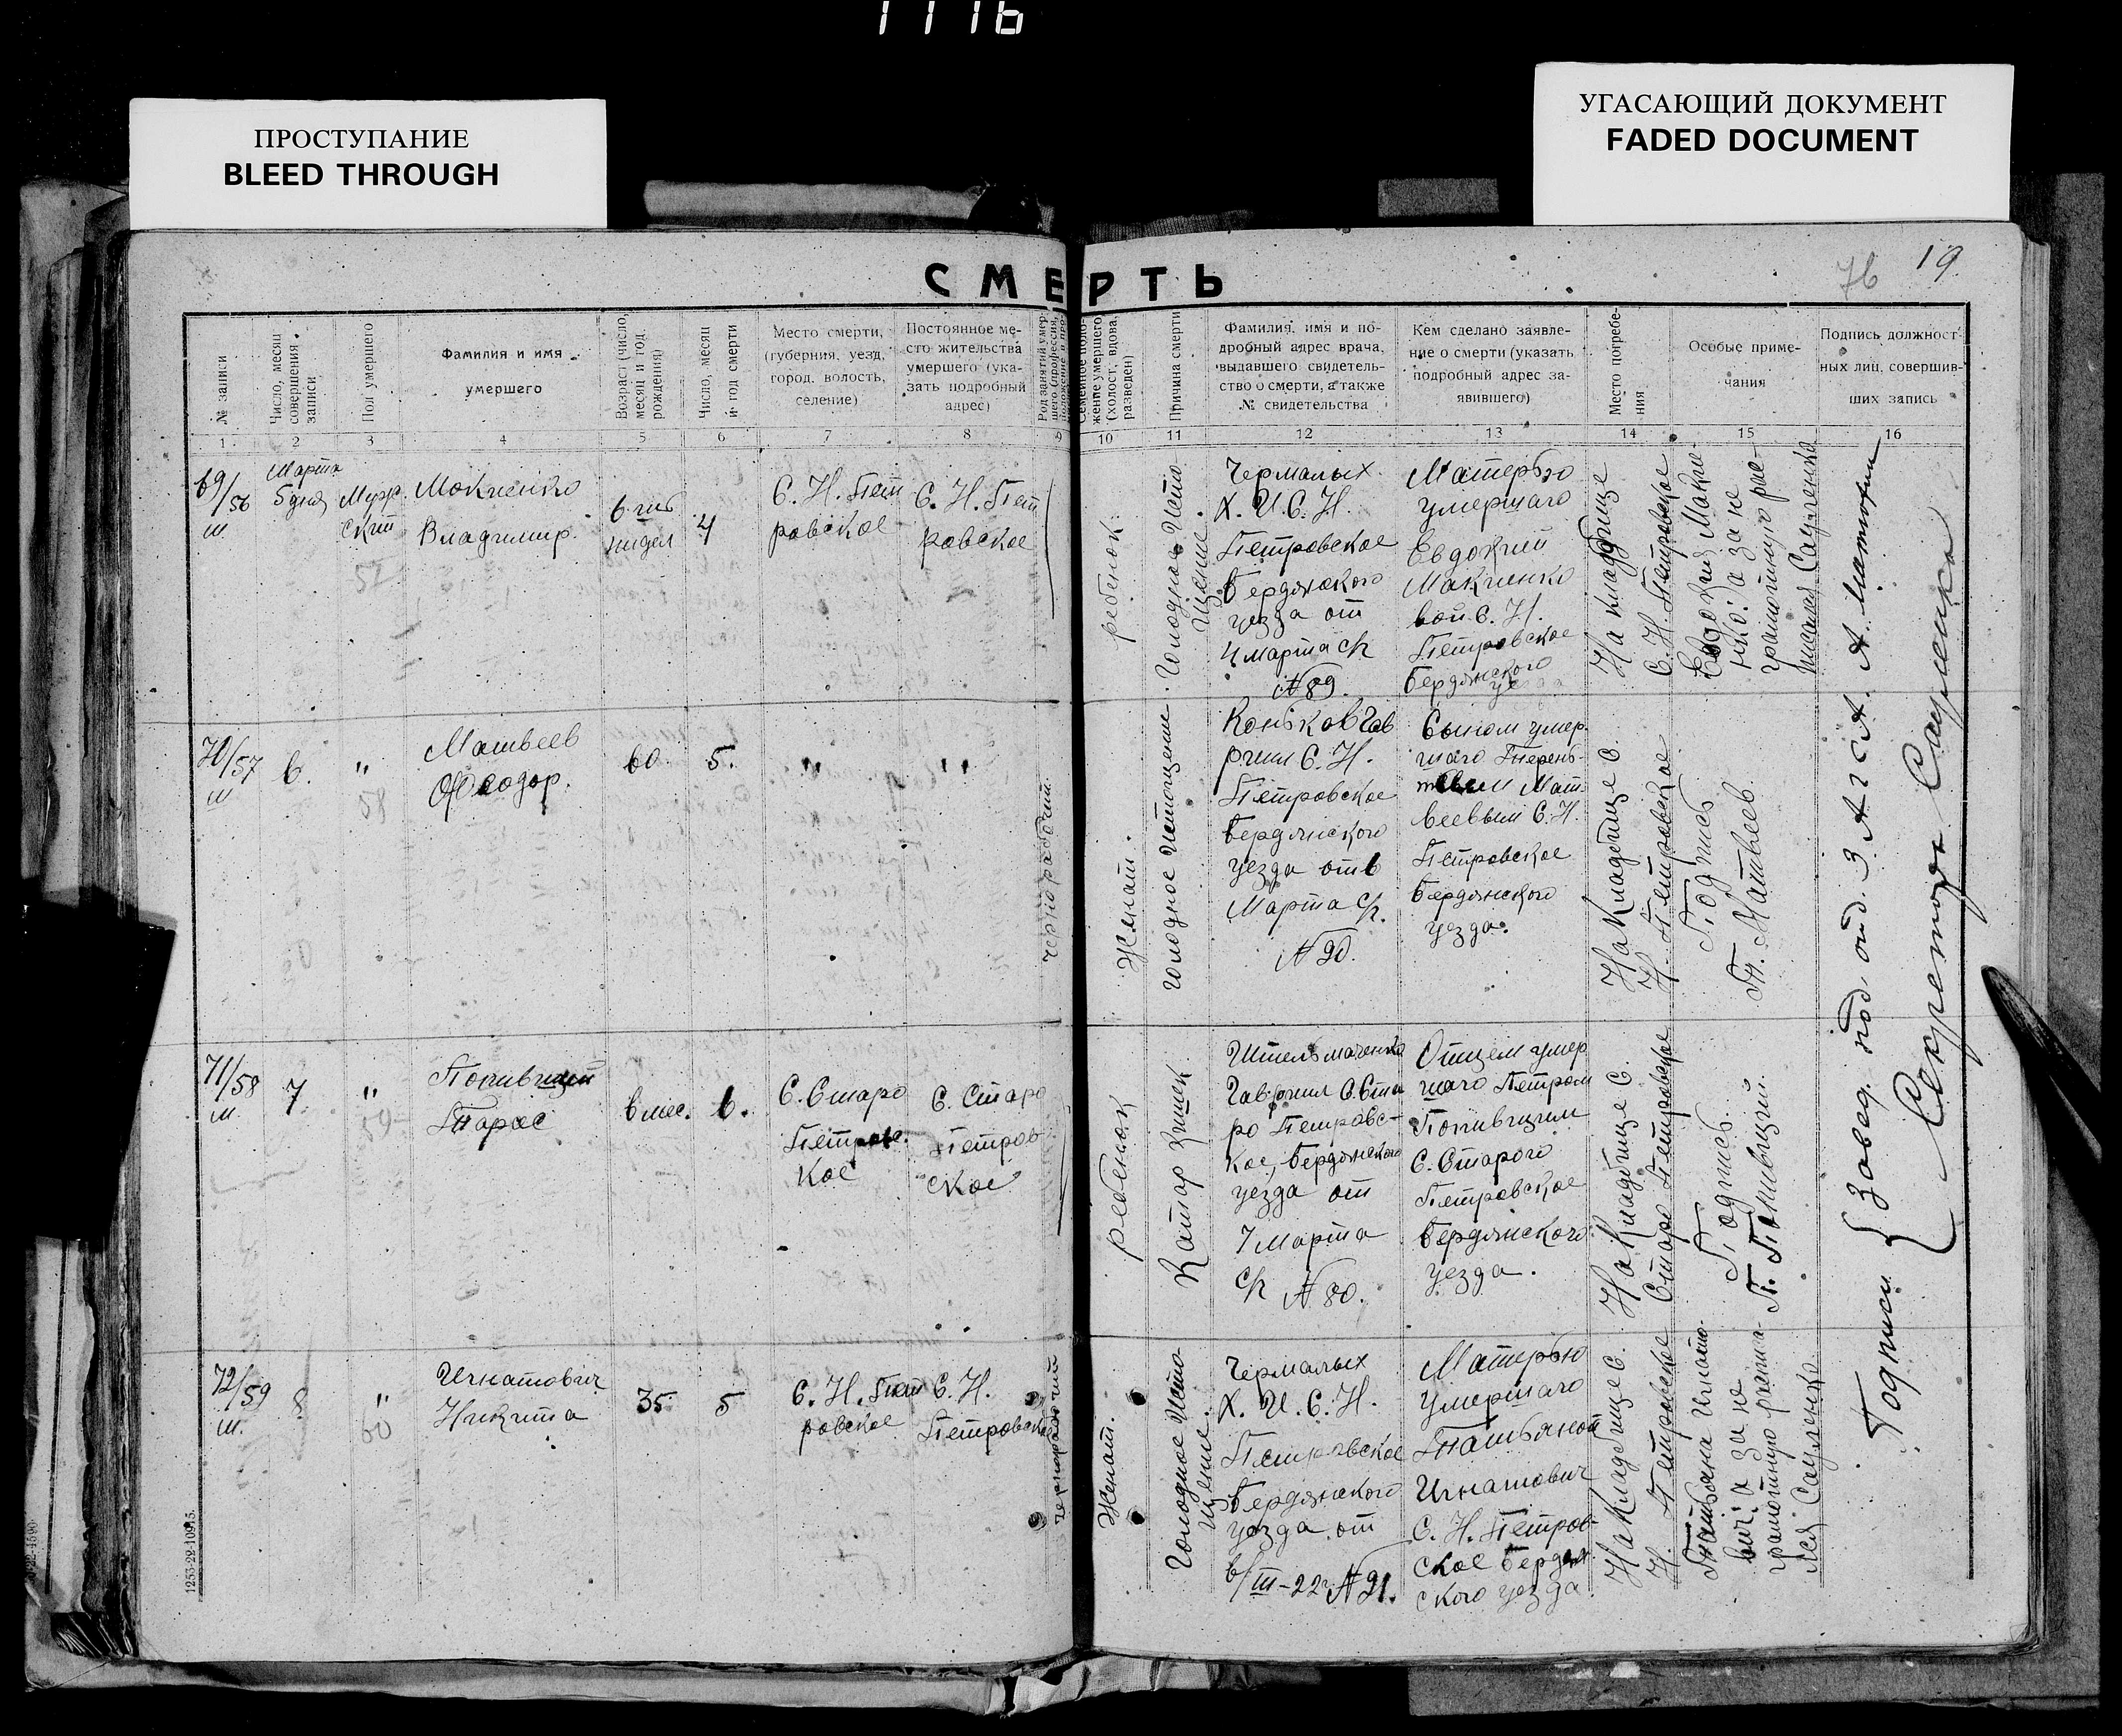 1116
ПРОСТУПАНИЕ
BLEED THROUGH
УГАСАЮЩИЙ ДОКУМЕНТ
FADED DOCUMENT
76 19
СМЕРТЬ
№ записи
Число, месяц
совершения
записи
Пол умершего
Фамилия и имя
умершего
Возраст (число,
месяц и год
рождения)
Число, месяц
и год смерти
Место смерти,
(губерния, уезд,
город, волость,
селение)
Постоянное ме-
сто жительства
умершего (ука-
зать подробный
адрес)
Род занятий умер-
шего (профессия,
Семейное поло-
жение умершего
(холост, вдова,
разведен)
Причина смерти
Фамилия, имя и по-
дробный адрес врача,
выдавшего свидетель-
ство о смерти, а также
№ свидетельства
Кем сделано заявле-
ние о смерти (указать
подробный адрес за-
явившего)
Место погребе-
ния
Особые приме-
чания
Подпись должност-
ных лиц, совершив-
ших запись
1 2 3 4 5 6 7 8 9 10 11 12 13 14 15 16
69/56
ш.
Марта
5 дня
Муж
ской
57
Мокиенко
Владимир.
6
недел
4
С. Н. Пет
ровское
С. Н. Пет
ровское
ребенок
Голодное Исто
щение.
Чермалых
Х. И. С. Н.
Петровское
Бердянского
уезда от
4 марта с/г
№ 89.
Матерью
умершаго
Евдокией
Макиенко
вой С. Н.
Петровское
Бердянского
уезда
На кладбище
С. Н. Петровское
Евдокия Макие-
нко: а за не
грамотную рас-
писался Сауленко
70/57
ш
6.
"
58
Матвеев
Феодор.
60
5.
"
"
чернорабочий.
Женат.
голодное истощение
Коньков Гав
риил С. Н.
Петровское
Бердянского
уезда от 6
Марта с/г.
№ 90.
Сыном умер
шаго Терень-
тием Мат-
веевым С. Н.
Петровское
Бердянского
уезда.
На Кладбище С.
Н. Петровское
Подпись
Тн. Матвеев
71/58
ш.
7.
"
59
Попивщий
Тарас
6 мес.
6.
С. Старо
Петровс.
кое
С. Старо
Петров
ское
ребенок
Катар Кишек
Штельмаченко
Гавриил С. Ста
ро Петровс-
кое, Бердянского
уезда от
7 Марта
с/г № 80.
Отцем умер
шаго Петром
С. Старого
Петровское
Бердянского
уезда.
На Кладбище С.
Старо Петровское
Подпись.
72/59
ш.
8.
"
60
Игнатович
Никита
35
5
С. Н. Пет
ровское
С. Н.
Петровское
Чернорабочий
Женат.
Голодное Исто
щение.
Чермалых
Х. И. С. Н.
Петровское
Бердянского
уезда, от
6/III-22г. № 91.
Матерью
Умершаго
Татьяной
Игнатович
С. Н. Петров-
ское Бердян
ского уезда
На Кладбище С.
Н. Петровское
Татьяна Игнато-
вич: А за не
грамотную расписа-
лся Сауленко
Подписи {Завед. под. отд. З А Г С А.
Секретарь Сауленко
1253-22-10915.